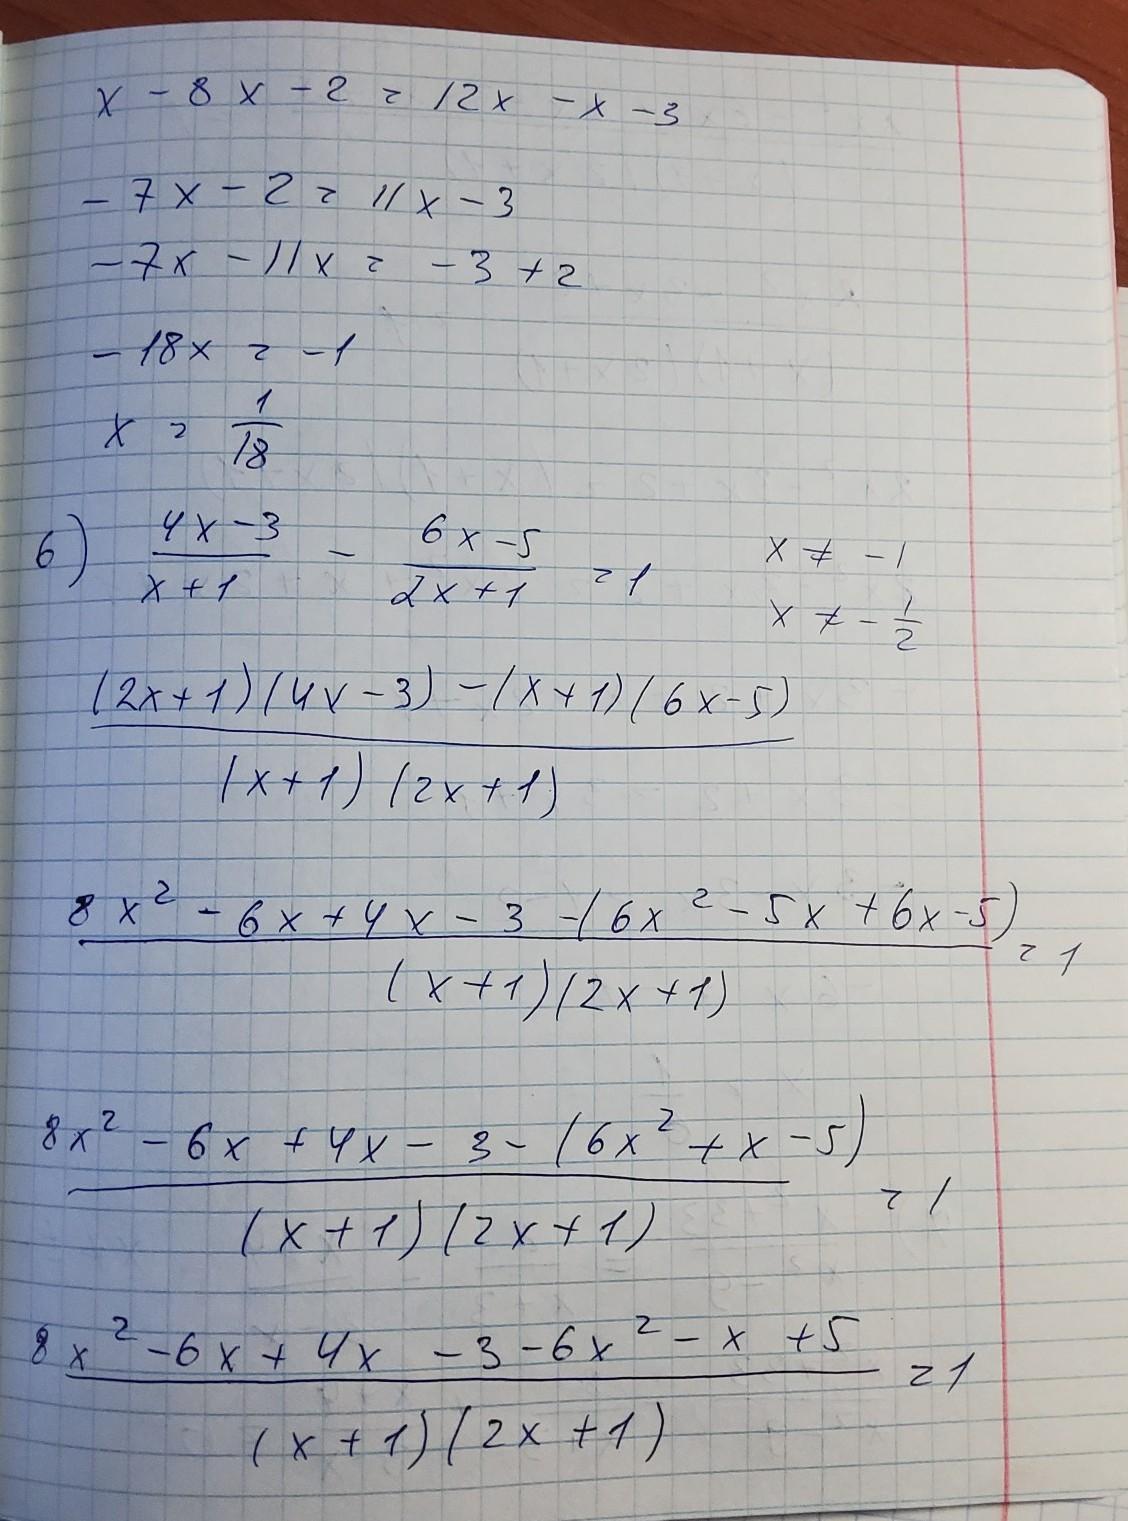 x - 8x - 2 = 12x - x - 3
-7x - 2 = 11x - 3
-7x - 11x = -3 + 2
-18x = -1
x = 1/18
б) (4x-3)/(x+1) - (6x-5)/(2x+1) = 1 x ≠ -1
x ≠ -1/2
(2x+1)(4x-3) - (x+1)(6x-5)
(x+1)(2x+1)
8x² - 6x + 4x - 3 - (6x² - 5x + 6x - 5) = 1
(x+1)(2x+1)
8x² - 6x + 4x - 3 - (6x² + x - 5) = 1
(x+1)(2x+1)
8x² - 6x + 4x - 3 - 6x² - x + 5 = 1
(x+1)(2x+1)